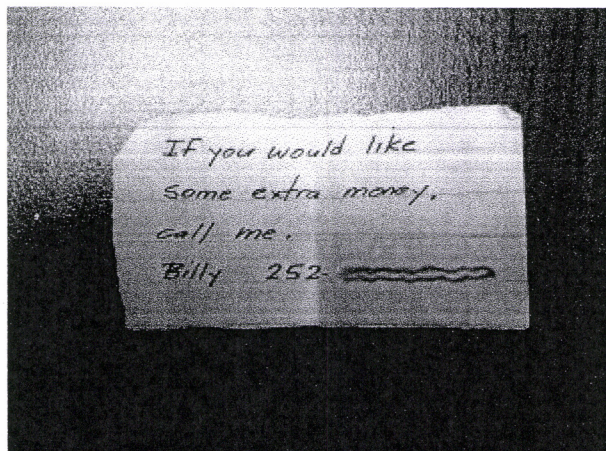 If you would like
some extra money,
call me.
Billy 252-